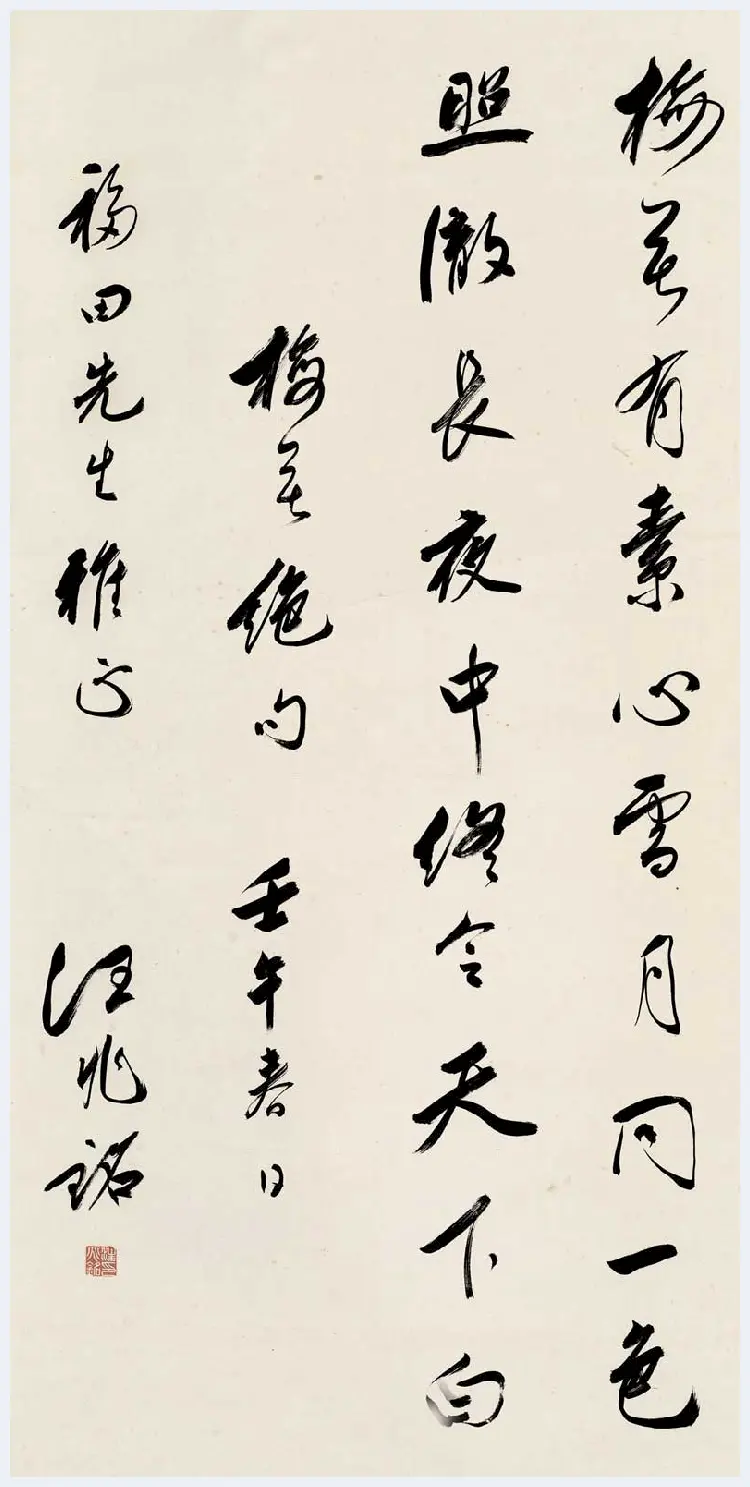 梅花有素心雪月同一色
照徹長夜中終令天下白
梅花絕句 壬午春日
福田先生雅正 汪兆銘
汪印兆銘